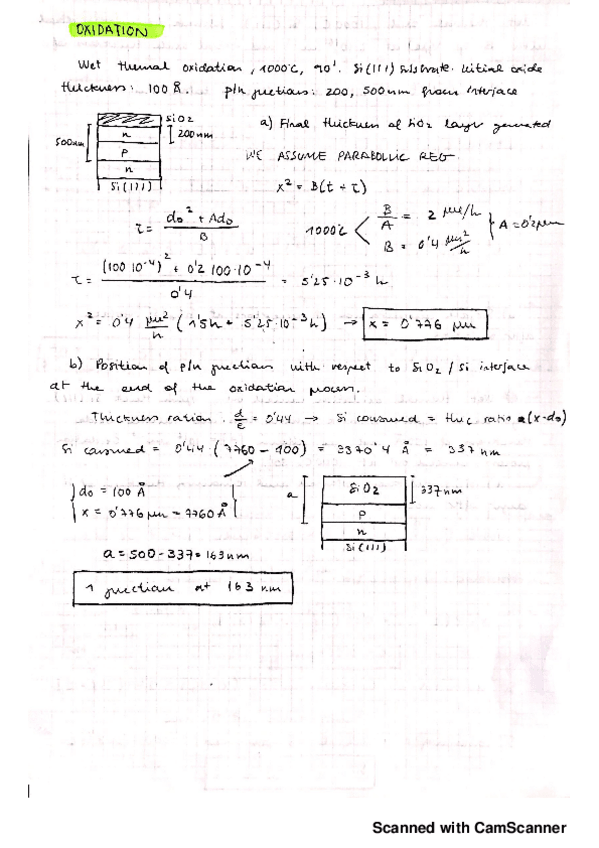 OXIDATION
Wet thermal oxidation, 1000°C, 90'. Si(111) substrate. Initial oxide
thickness: 100 Å. p/n junctions: 200, 500 nm from interface
SiO2
n
200nm
500nm
p
n
Si(111)
a) Final thickness of SiO2 layer generated
WE ASSUME PARABOLIC REG
x² = B(t + τ)
τ = do² + Ado / B
1000°C
B/A = 2 μm/h
B = 0'4 μm²/h
A = 0'2μm
τ = (100·10⁻⁴)² + 0'2·100·10⁻⁴ / 0'4 = 5'25·10⁻³ h
x² = 0'4 μm²/h (1'5h + 5'25·10⁻³h) → x = 0'776 μm
b) Position of p/n junctions with respect to SiO2 / Si interface
at the end of the oxidation process.
Thickness ration: d/ε = 0'44 → Si consumed = thic ratio (x-do)
Si consumed = 0'44 · (7760 - 100) = 3370'4 Å = 337 nm
do = 100 Å
x = 0'776 μm = 7760 Å
a
SiO2
337nm
p
n
Si(111)
a = 500 - 337 = 163nm
1 junction at 163 nm
Scanned with CamScanner